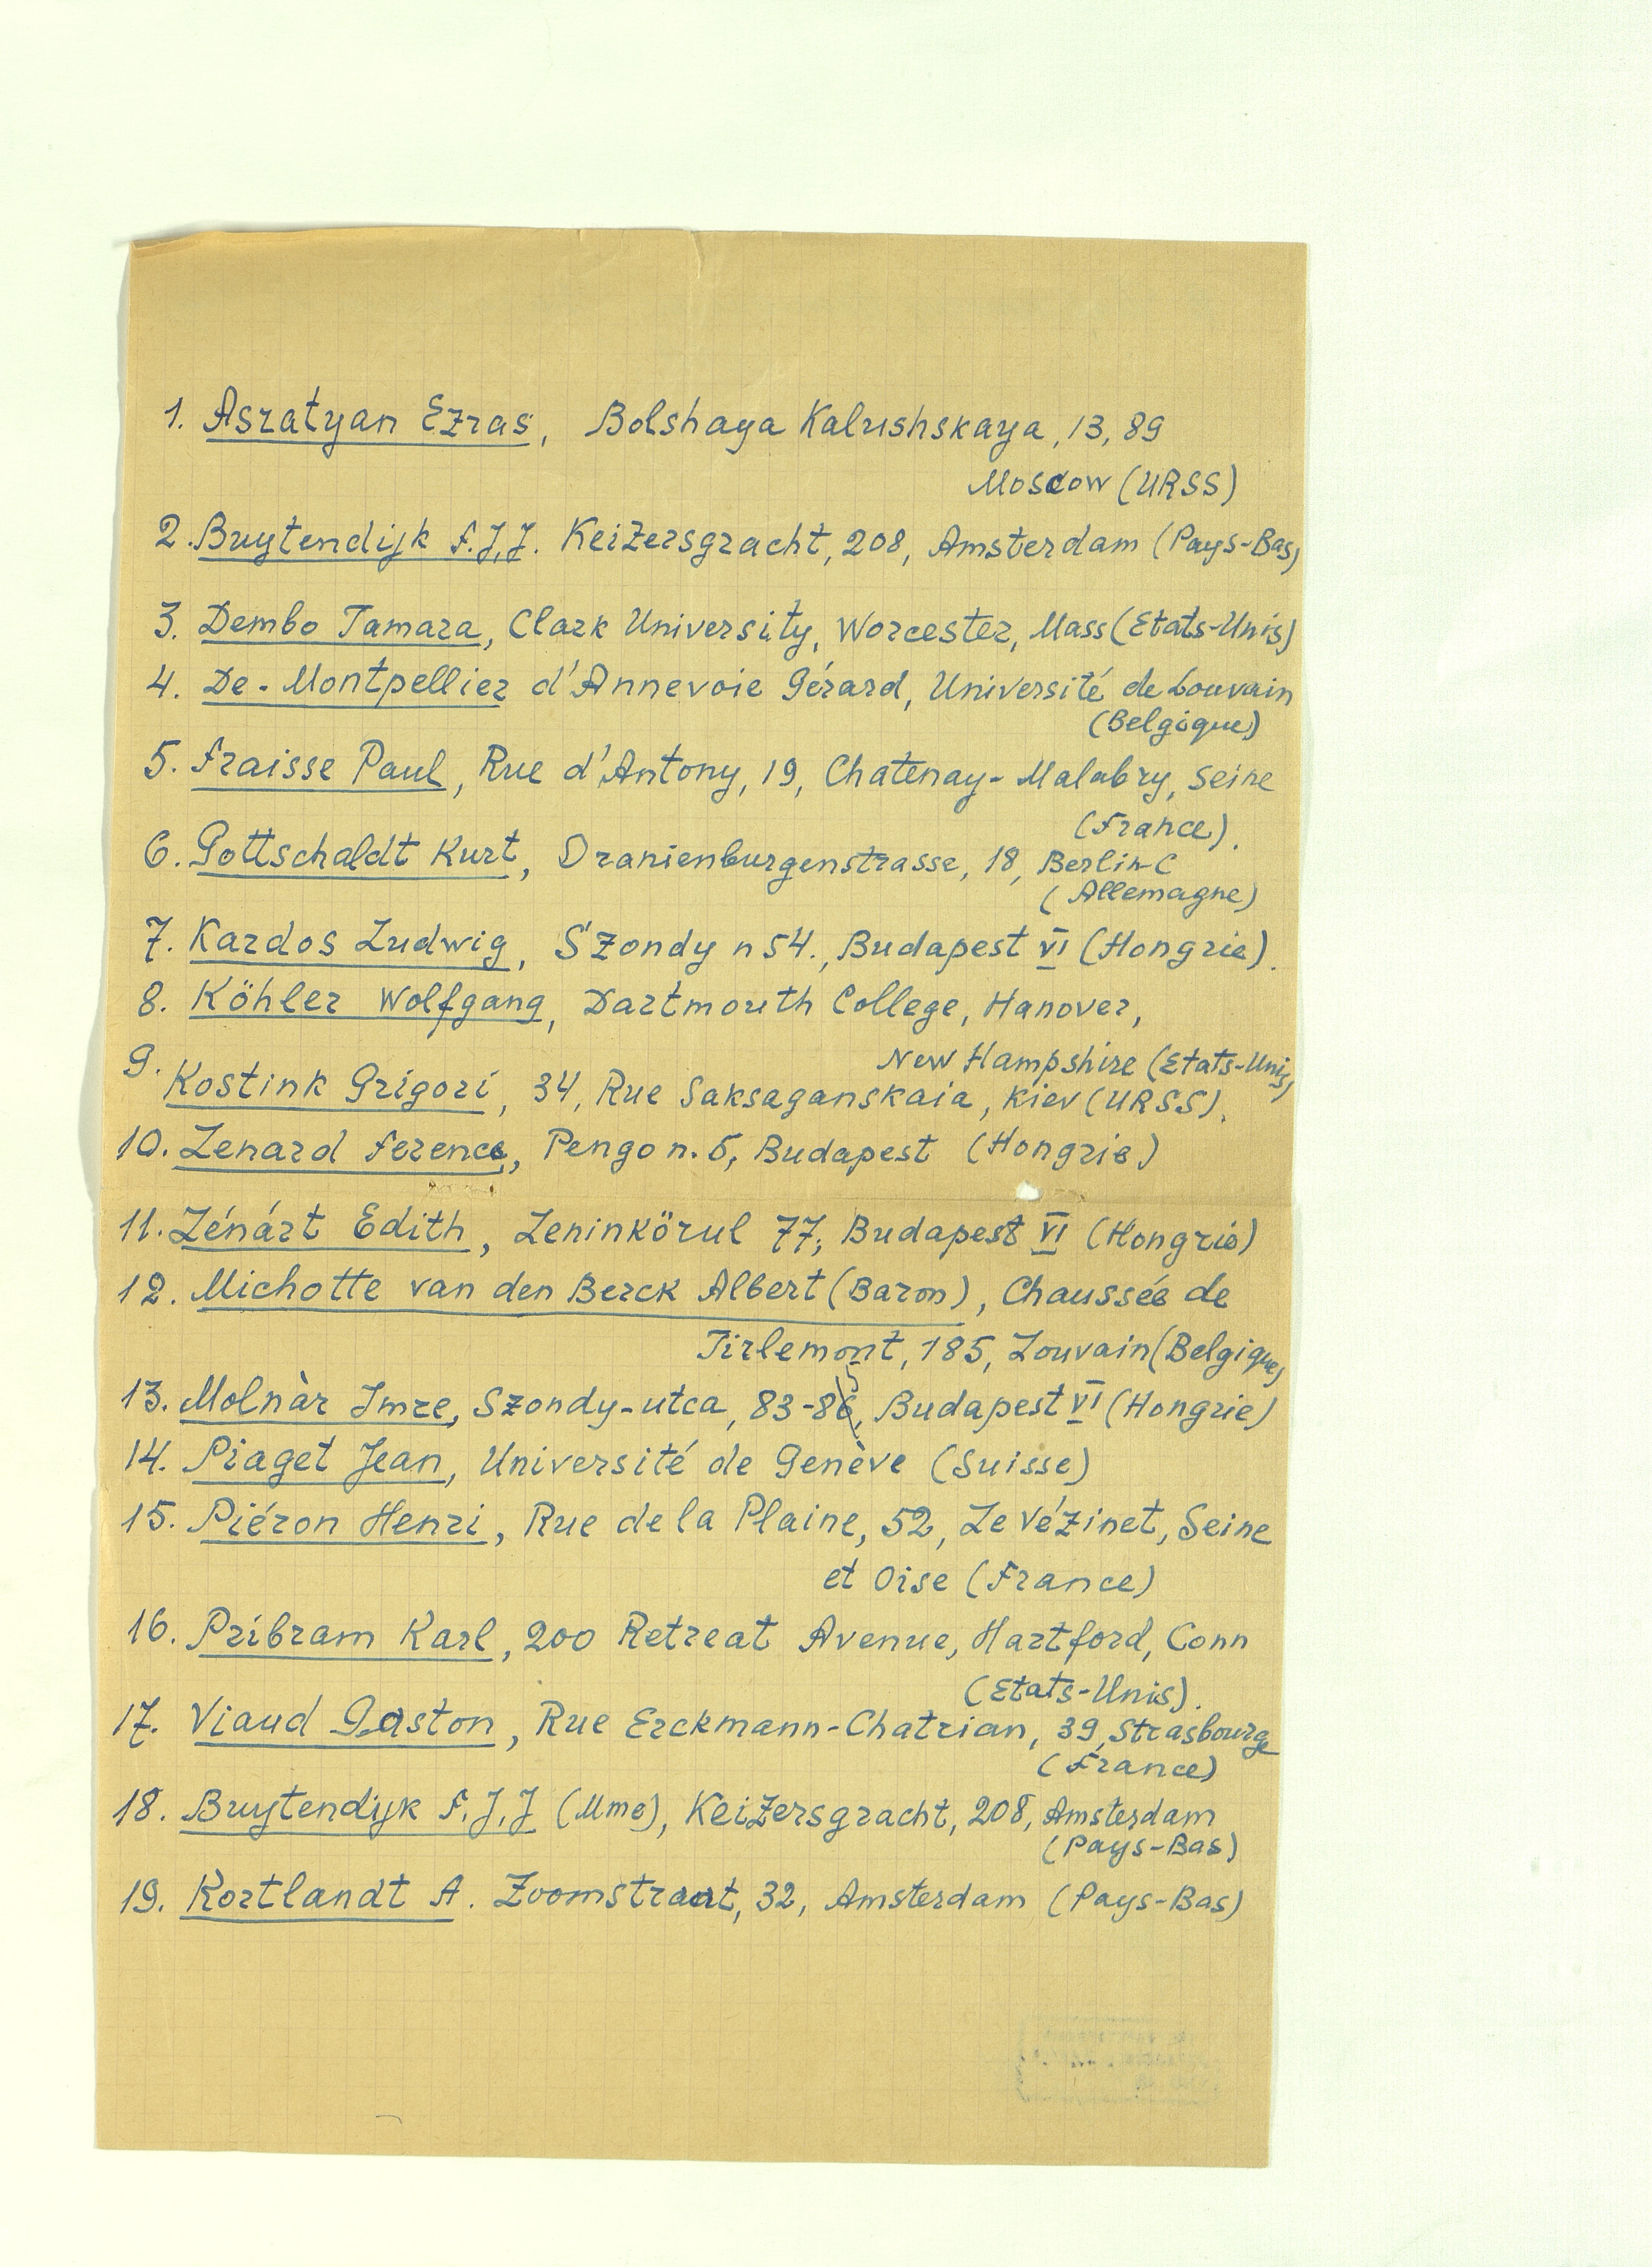 1. Asratyan Ezras, Bolshaya Kalushskaya, 13, 89
Moscow (URSS)
2. Buytendijk F.J.J. Keizersgracht, 208, Amsterdam (Pays-Bas)
3. Dembo Tamara, Clark University, Worcester, Mass (Etats-Unis)
4. De-Montpellier d'Annevoie Gérard, Université de Louvain
(Belgique)
5. Fraisse Paul, Rue d'Antony, 19, Chatenay-Malabry, Seine
(France).
6. Gottschaldt Kurt, Oranienburgenstrasse, 18, Berlin-C
(Allemagne)
7. Kardos Ludwig, Szondy n 54., Budapest VI (Hongrie).
8. Köhler Wolfgang, Dartmouth College, Hanover,
New Hampshire (Etats-Unis)
9. Kostink Grigori, 34, Rue Saksaganskaia, Kiev (URSS).
10. Lenard Ferenc, Pengo n. 5, Budapest (Hongrie)
11. Lénárt Edith, Leninkörul 77, Budapest VI (Hongrie)
12. Michotte van den Berck Albert (Baron), Chaussée de
Tirlemont, 185, Louvain (Belgique)
13. Molnàr Imre, Szondy-utca, 83-85, Budapest VI (Hongrie)
14. Piaget Jean, Université de Genève (Suisse)
15. Piéron Henri, Rue de la Plaine, 52, Le Vézinet, Seine
et Oise (France)
16. Pribram Karl, 200 Retreat Avenue, Hartford, Conn
(Etats-Unis).
17. Viaud Gaston, Rue Erckmann-Chatrian, 39, Strasbourg
(France)
18. Buytendijk F.J.J (Mme), Keizersgracht, 208, Amsterdam
(Pays-Bas)
19. Kortlandt A. Zoomstraat, 32, Amsterdam (Pays-Bas)